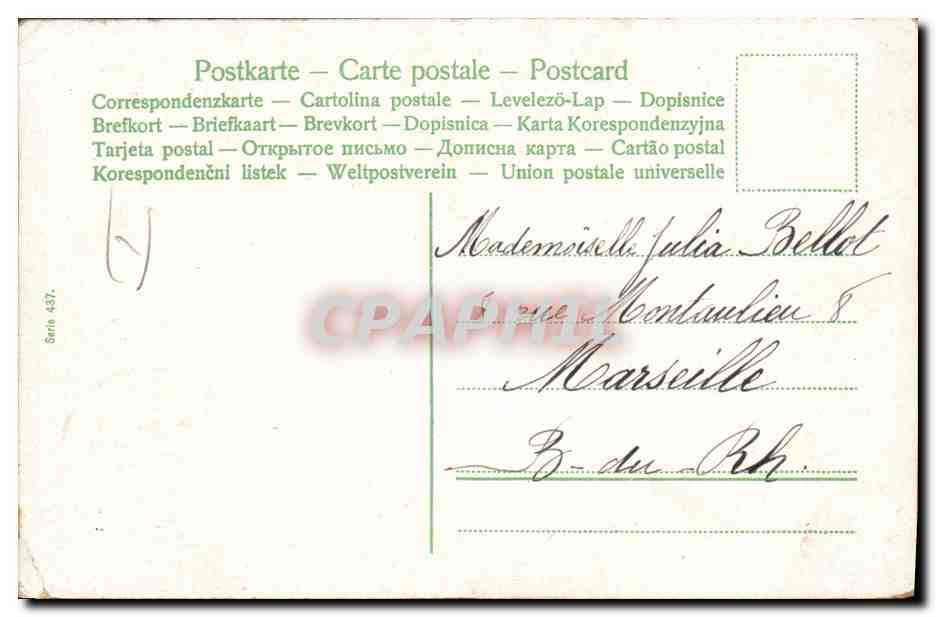 Postkarte – Carte postale – Postcard
Correspondenzkarte – Cartolina postale – Levelező-Lap – Dopisnice
Brefkort – Briefkaart – Brevkort – Dopisnica – Karta Korespondenzyjna
Tarjeta postal – Открытое письмо – Дописна карта – Cartão postal
Korespondenční listek – Weltpostverein – Union postale universelle
Mademoiselle Julia Bellot
rue Montaulieu 8
Marseille
B- du Rh.
Serie 437.
CPAPHIL